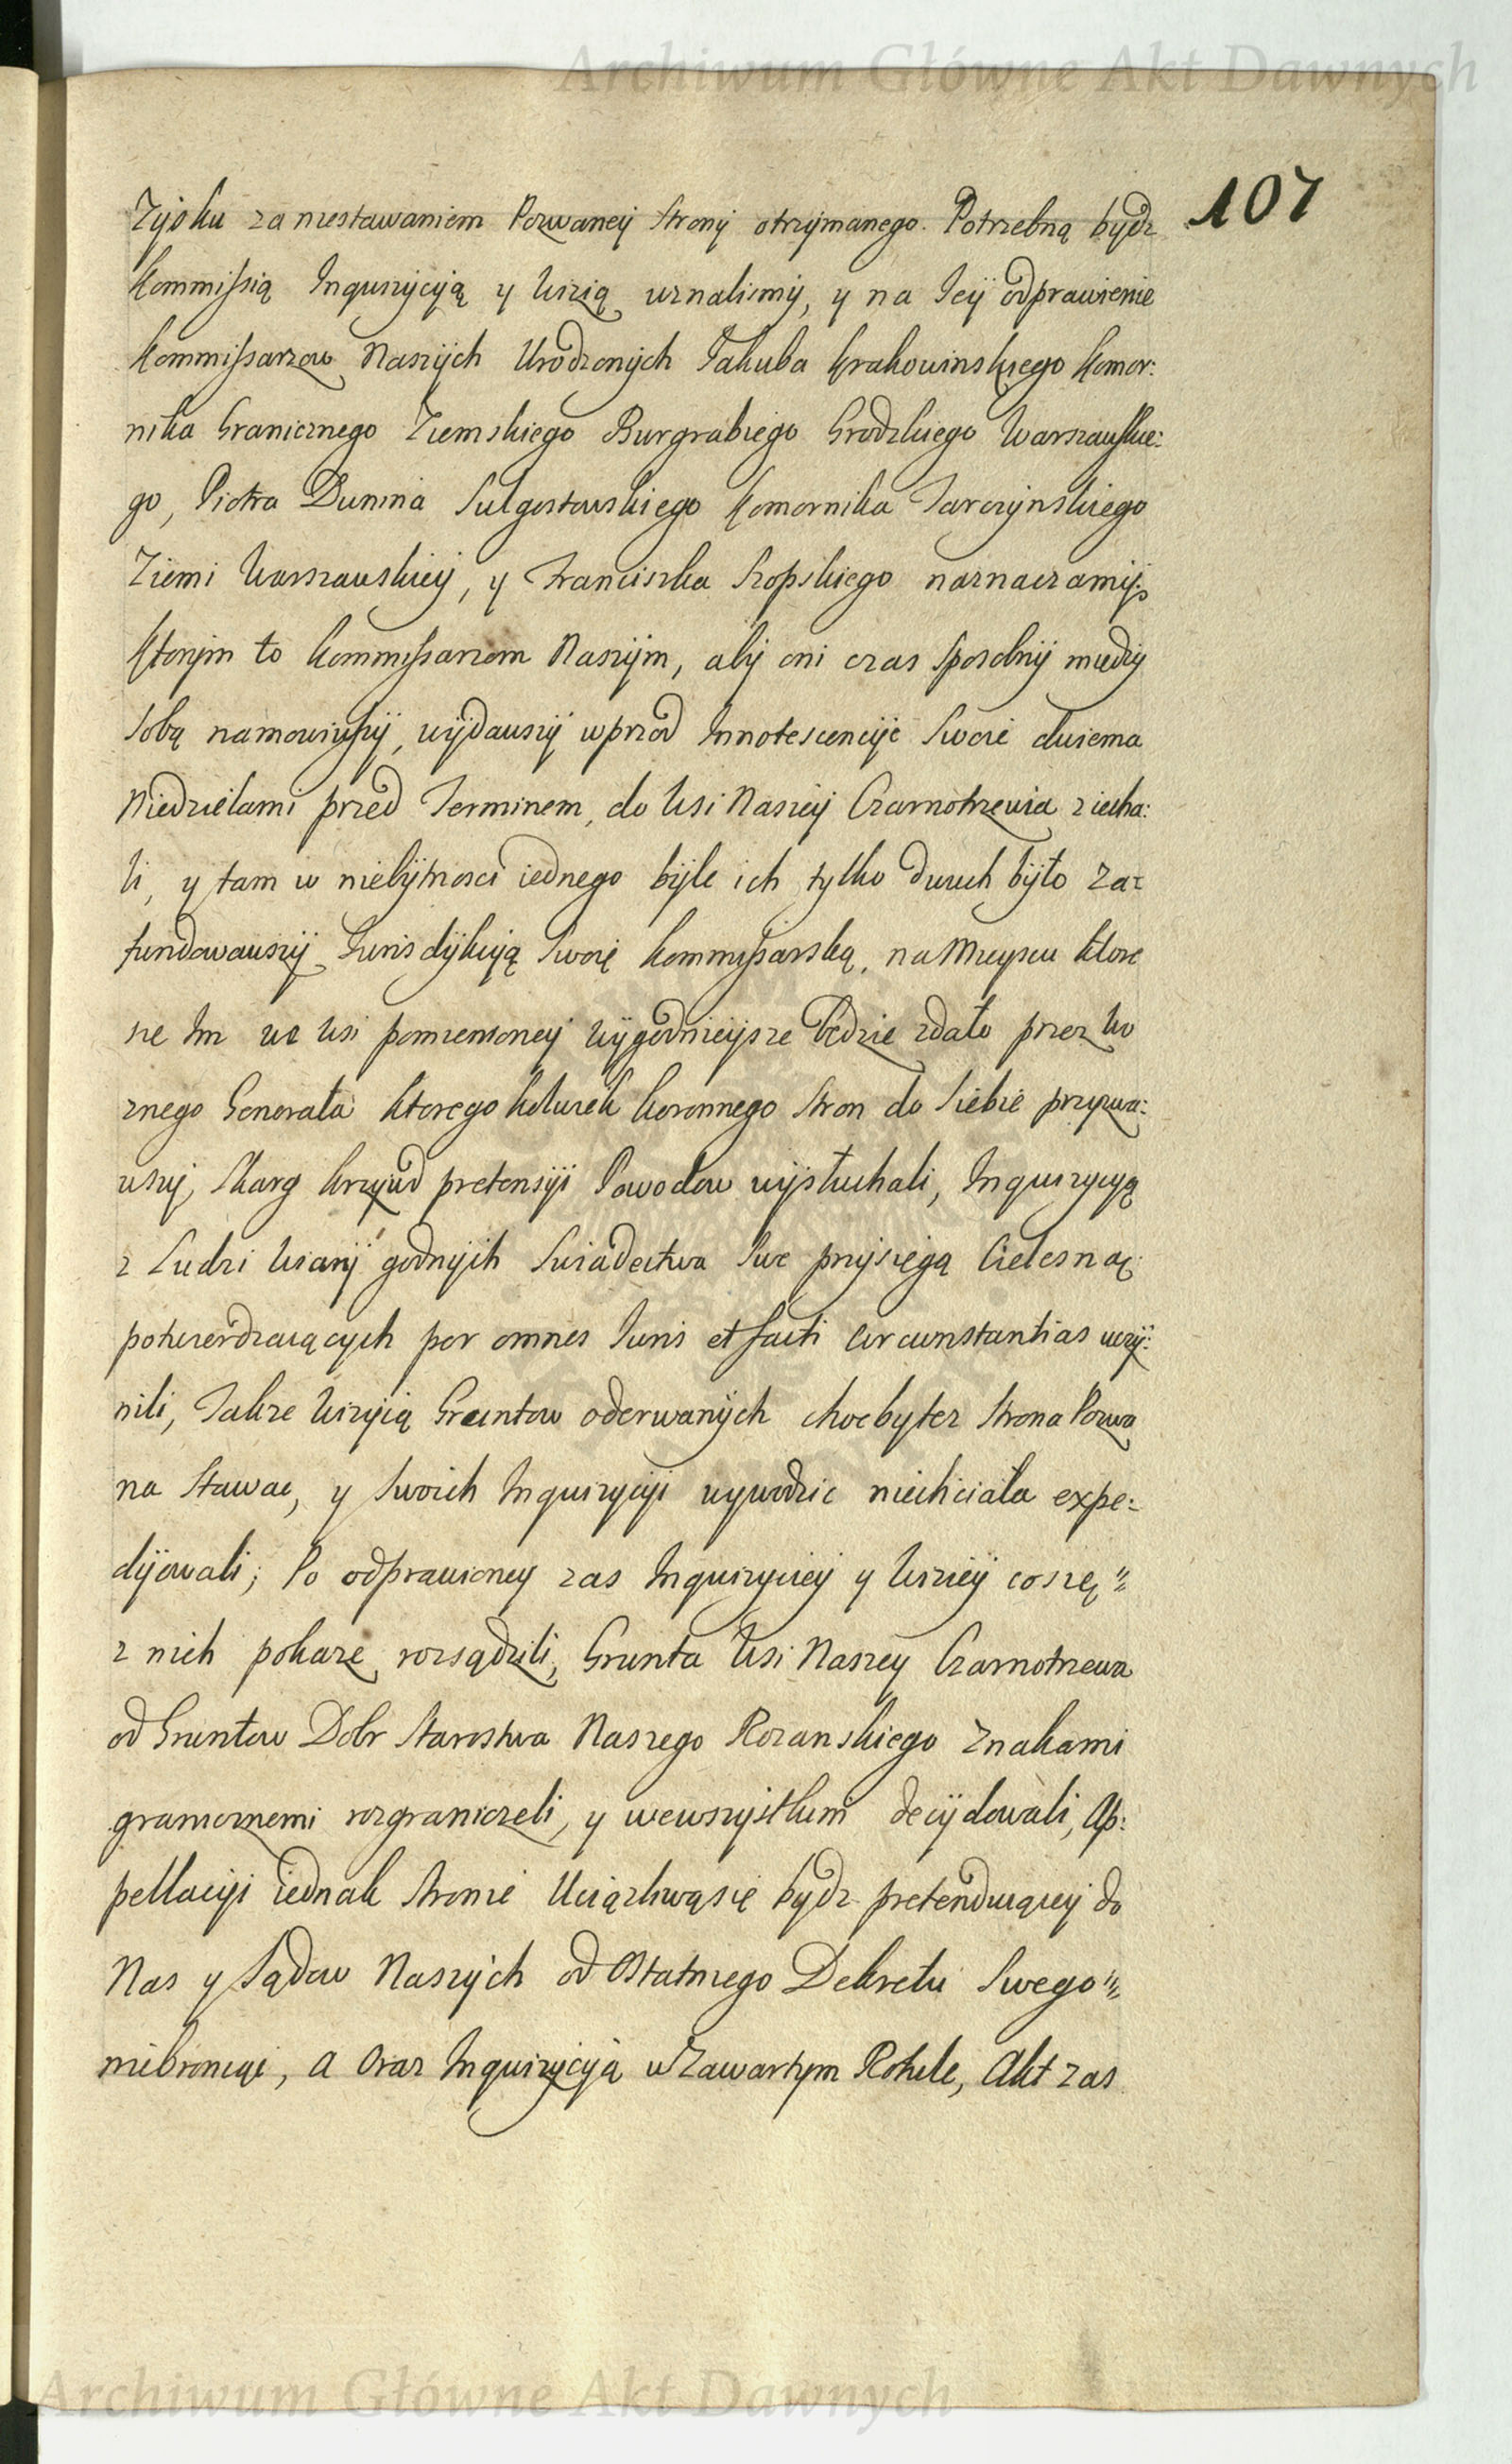 Archiwum Główne Akt Dawnych
107
Zysku za niestawaniem Pozwaney Strony otrzymanego. Potrzebną bydz
Kommissią Inquizycyją y Wizią uznalismy, y na Jey odprawienie
Kommissarzow Naszych Urodzonych Jakuba Krakowinskiego Komor:
nika Granicznego Ziemskiego Burgrabiego Grodzkiego Warszawskie:
go, Piotra Dunina Sulgostowskiego Komornika Tarczynskiego
Ziemi Warszawskiey, y Franciszka Szopskiego naznaczamy;
Ktorym to Kommissarzom Naszym, aby oni czas sposobny miedzy
sobą namowiwszy, wydawszy wprzod Innotescencyje Swoie dwiema
Niedzielami przed Terminem, do Wsi Naszey Czarnotrzewia ziecha:
li, y tam w niebytnosci iednego byle ich tylko dwuch było Za:
fundowawszy Jurisdykcyją Swoię Kommissarską, na Mieyscu ktore
sie Im we Wsi pomienioney wygodnieysze będzie zdało przez Wo
znego Generała ktoregokolwiek Koronnego Stron do Siebie przyzwa:
wszy, Skarg Krzywd pretensyi Powodow wysłuchali, Inquizycyą
z Ludzi Wiary godnych Swiadectwa Swe przysięgą Cielesną
potwierdzaiących per omnes Iuris et facti Circumstantias uczy:
nili, Takze Wizyią Gruntow oderwanych chocbytez Strona Pozwa
na Stawac, y Swoich Inquizycyi wywodzic niechciała expe:
dyowali; Po odprawioney zas Inquizycyey y Wiziey cosię
z nich pokaze rozsądzili, Grunta Wsi Naszey Czarnotrzewa
od Gruntow Dobr Starostwa Naszego Rozanskiego Znakami
granicznemi rozgraniczeli, y wewszystkim decydowali, Ap:
pellacyi iednak Stronie Uciązliwąsię bydz pretenduiącey do
Nas y Sądow Naszych od Ostatniego Dekretu Swego
niebroniąc, a Oraz Inquizycyją w Zawartym Rotule, Akt zas
Archiwum Główne Akt Dawnych